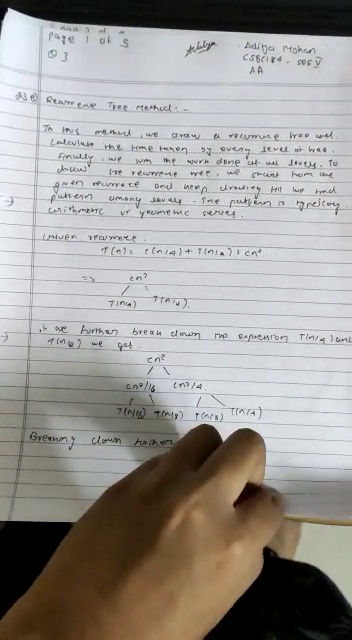 Page 1 of 5
Q 3
Aditya Mohan
CSBC184, sec V
AA
Recurrence Tree Method: -
In this method, we draw a recurrence tree and
calculate the time taken by every level of tree.
Finally, we sum the work done at all levels. To
draw the recurrence tree, we start from the
given recurrence and keep drawing till we find
pattern among levels. The pattern is typically
arithmetic or geometric series.
Given recurrence:
T(n) = T(n/4) + T(n/2) + cn²
=> cn²
T(n/4) T(n/2)
if we further break down the expression T(n/4) and
T(n/2) we get
cn²
cn²/16 cn²/4
T(n/16) T(n/8) T(n/8) T(n/4)
Breaking down further